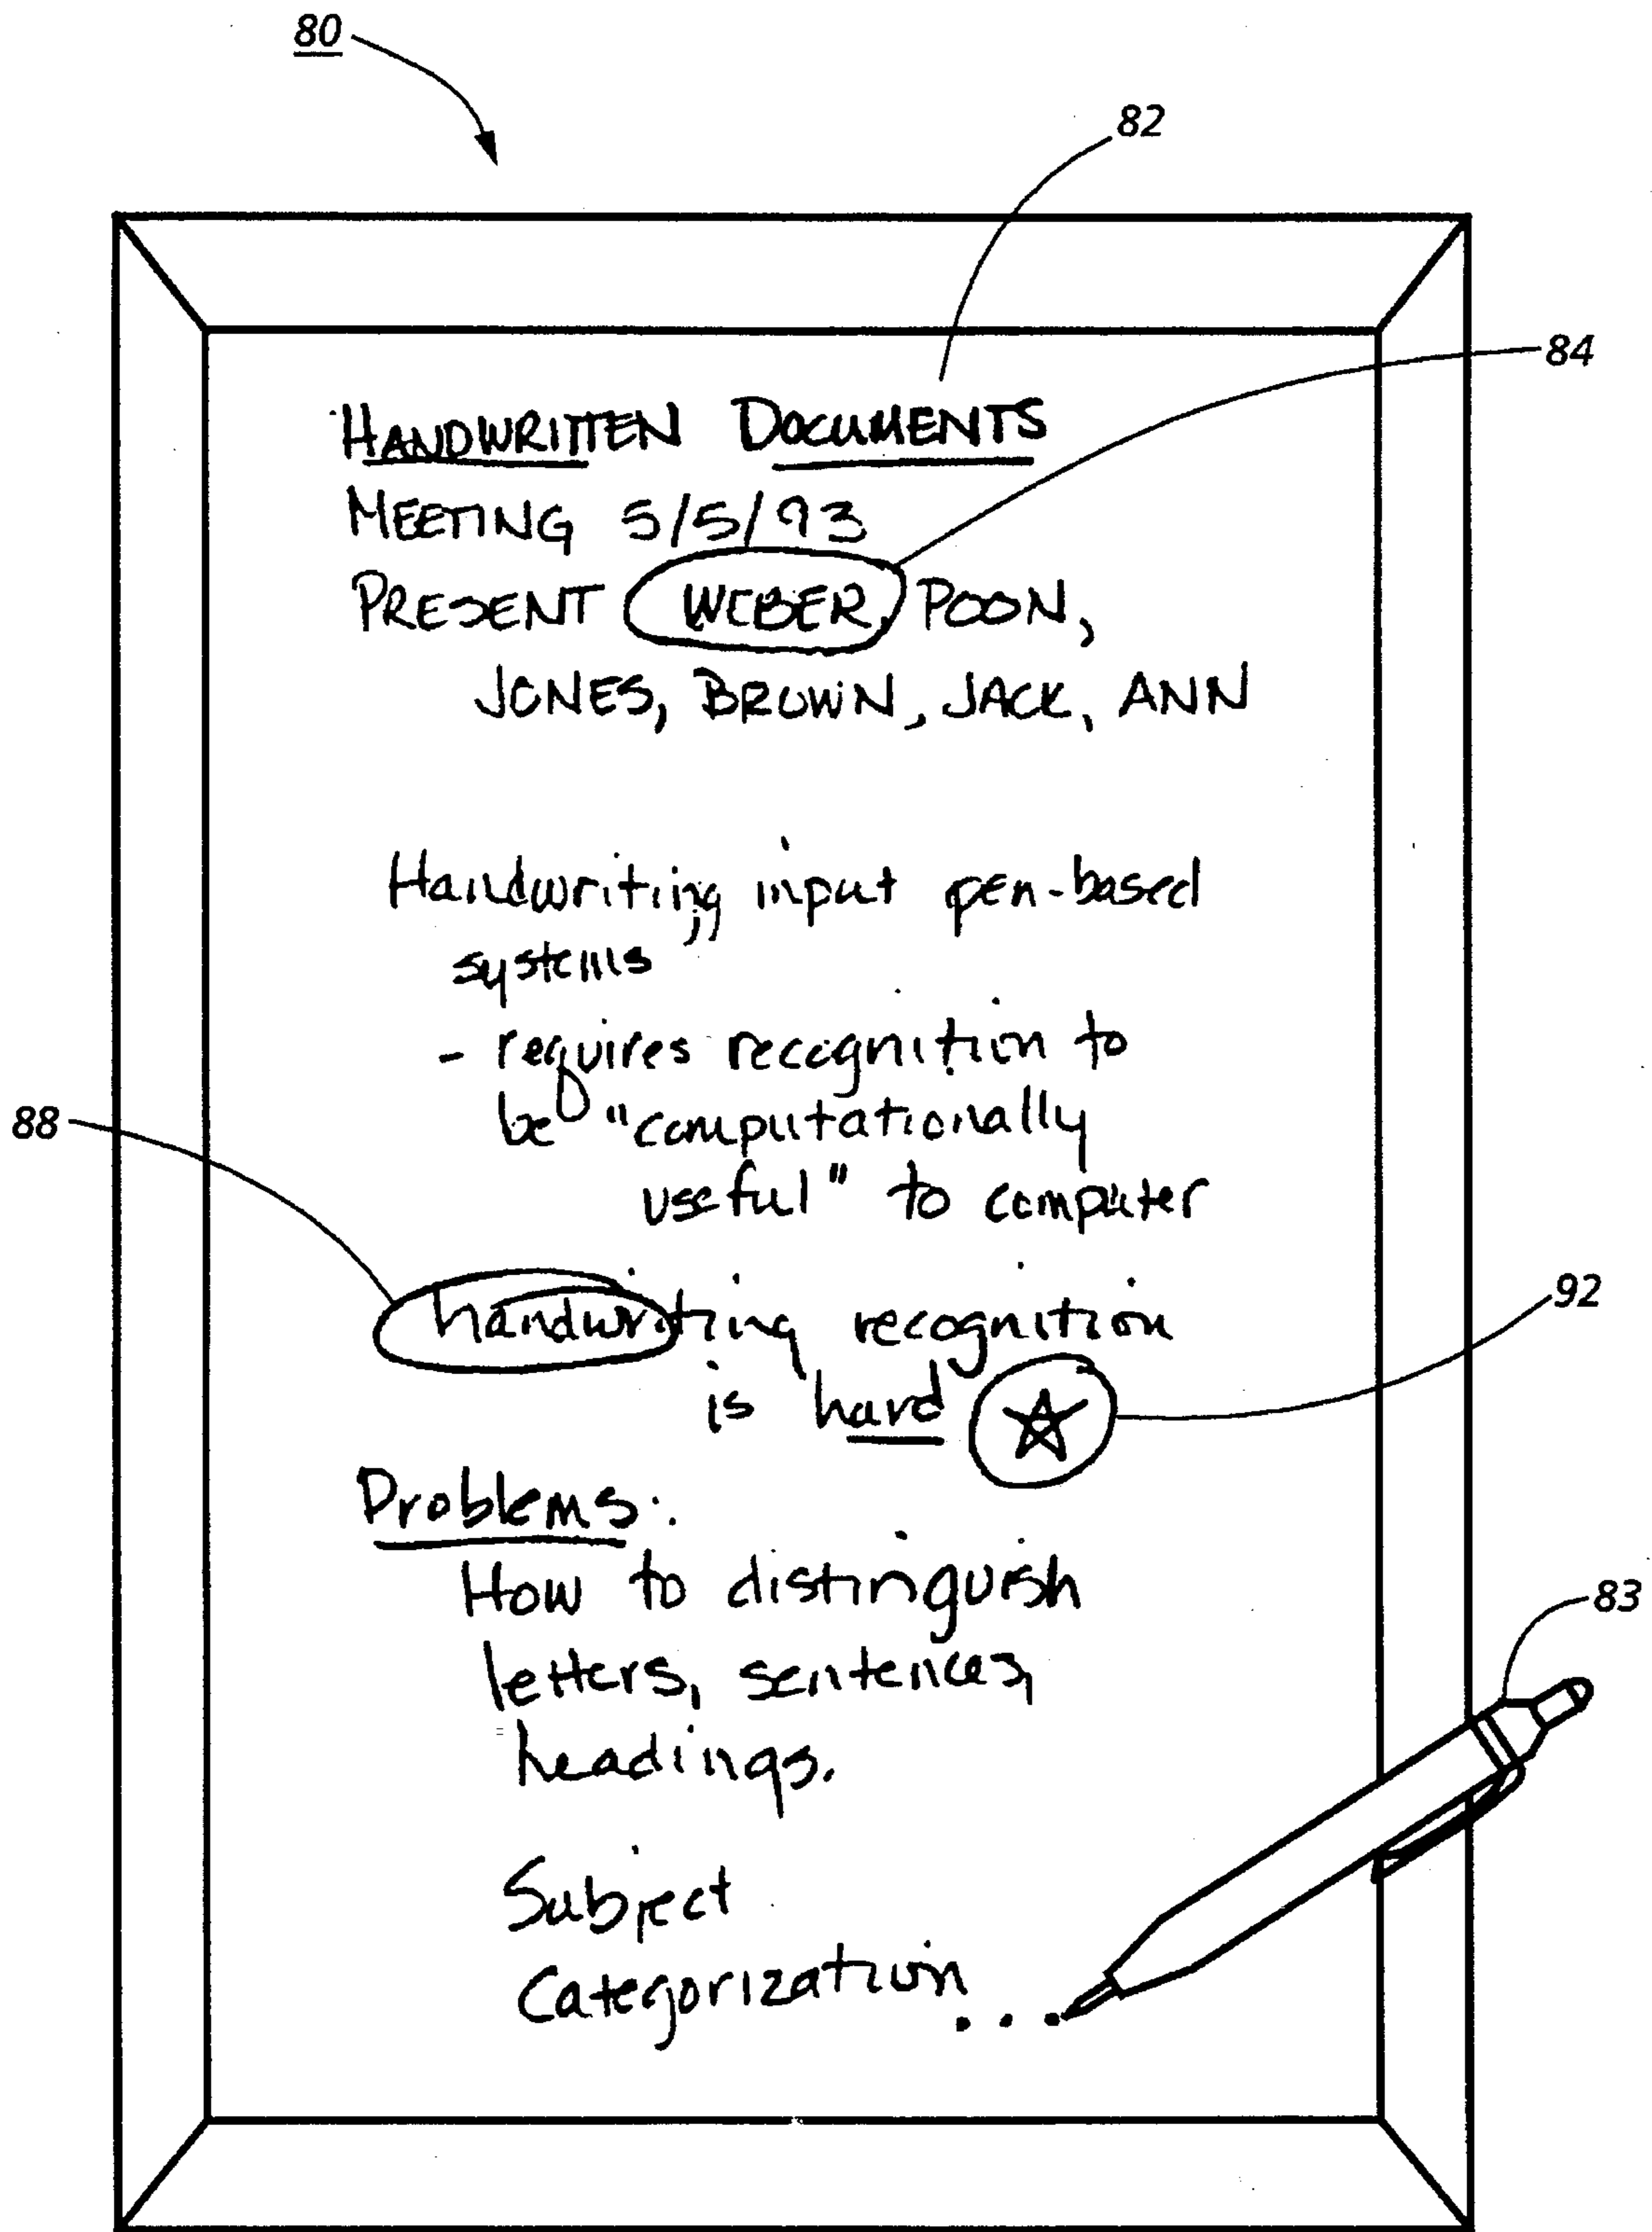 80
82
84
HANDWRITTEN DOCUMENTS
MEETING 5/5/93
PRESENT WEBER, POON,
JONES, BROWN, JACK, ANN
Handwriting input pen-based
systems
- requires recognition to
be "computationally
useful" to computer
88
handwriting recognition
is hard
92
Problems:
How to distinguish
letters, sentences,
headings.
83
Subject
Categorization...